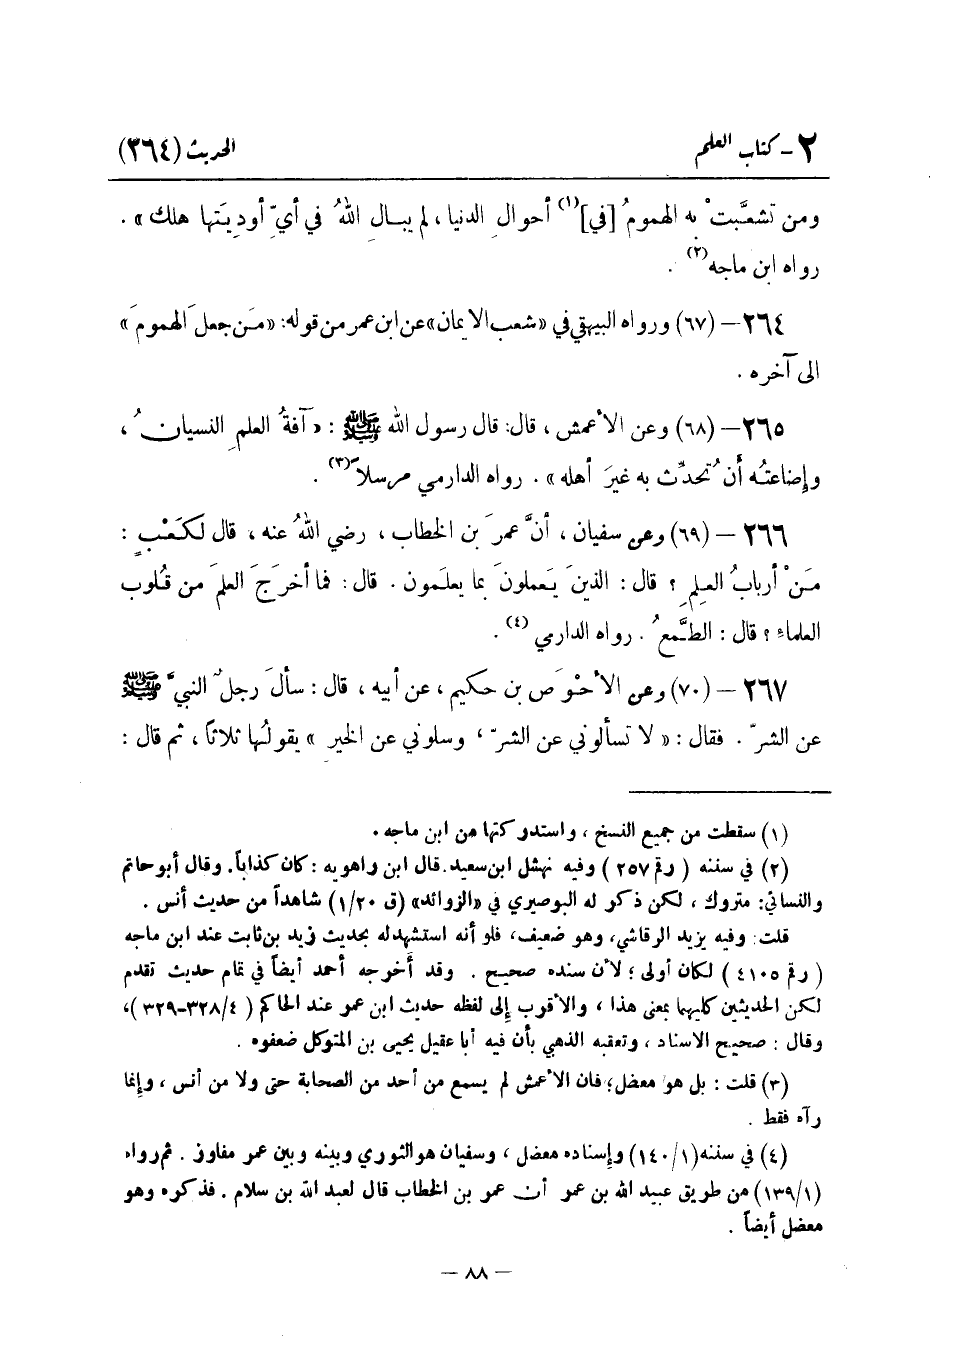 ٢ - كتاب العلم
الحديث (٢٦٤)
ومن تشعَّبتْ به الهمومُ [في](١) أحوالِ الدنيا، لم يبالِ اللهُ في أيِّ أوديَتها هلك» .
رواه ابن ماجه(٢) .
٢٦٤ – (٦٧) ورواه البيهقي في «شعب الايمان» عن ابن عمر من قوله: «مَن جعلَ الهمومَ»
الى آخره .
٢٦٥ – (٦٨) وعن الأعمش، قال: قال رسول الله ﷺ : «آفةُ العلمِ النسيانُ،
وإضاعتُه أن تُحدِّث به غيرَ أهله» . رواه الدارمي مرسلاً(٣) .
٢٦٦ – (٦٩) وعن سفيان، أنَّ عمرَ بن الخطاب، رضي اللهُ عنه، قال لكَعْبٍ :
مَنْ أربابُ العلمِ ؟ قال : الذينَ يَعملونَ بما يعلَمون . قال : فما أخرَجَ العلمَ من قُلوب
العلماءِ ؟ قال : الطَّمعُ . رواه الدارمي (٤) .
٢٦٧ – (٧٠) وعن الأحْوَص بن حكيم، عن أبيه، قال : سألَ رجلٌ النبيَّ ﷺ
عن الشرِّ . فقال : « لا تسألوني عن الشرِّ، وسلوني عن الخيرِ » يقولُها ثلاثاً، ثم قال :
(١) سقطت من جميع النسخ، واستدركتها من ابن ماجه .
(٢) في سننه (رقم ٢٥٧) وفيه نهشل ابن سعيد. قال ابن راهويه : كان كذاباً. وقال أبو حاتم
والنسائي: متروك، لكن ذكر له البوصيري في «الزوائد» (ق ١/٢٠) شاهداً من حديث أنس .
قلت: وفيه يزيد الرقاشي، وهو ضعيف، فلو أنه استشهد له بحديث زيد بن ثابت عند ابن ماجه
( رقم ٤١٠٥ ) لكان أولى ؛ لأن سنده صحيح . وقد أخرجه أحمد أيضاً في تمام حديث تقدم
لكن الحديثين كليهما بمعنى هذا، والأقرب إلى لفظه حديث ابن عمر عند الحاكم ( ٤/٣٢٨-٣٢٩ )،
وقال : صحيح الاسناد، وتعقبه الذهبي بأن فيه أبا عقيل يحيى بن المتوكل ضعفوه .
(٣) قلت : بل هو معضل؛ فان الأعمش لم يسمع من أحد من الصحابة حتى ولا من أنس، وإنما
رآه فقط .
(٤) في سننه (١/١٤٠) وإسناده معضل، وسفيان هو الثوري وبينه وبين عمر مفاوز . ثم رواه
(١/١٣٩) من طريق عبيد الله بن عمر أن عمر بن الخطاب قال لعبد الله بن سلام . فذكره وهو
معضل أيضاً .
– ٨٨ –